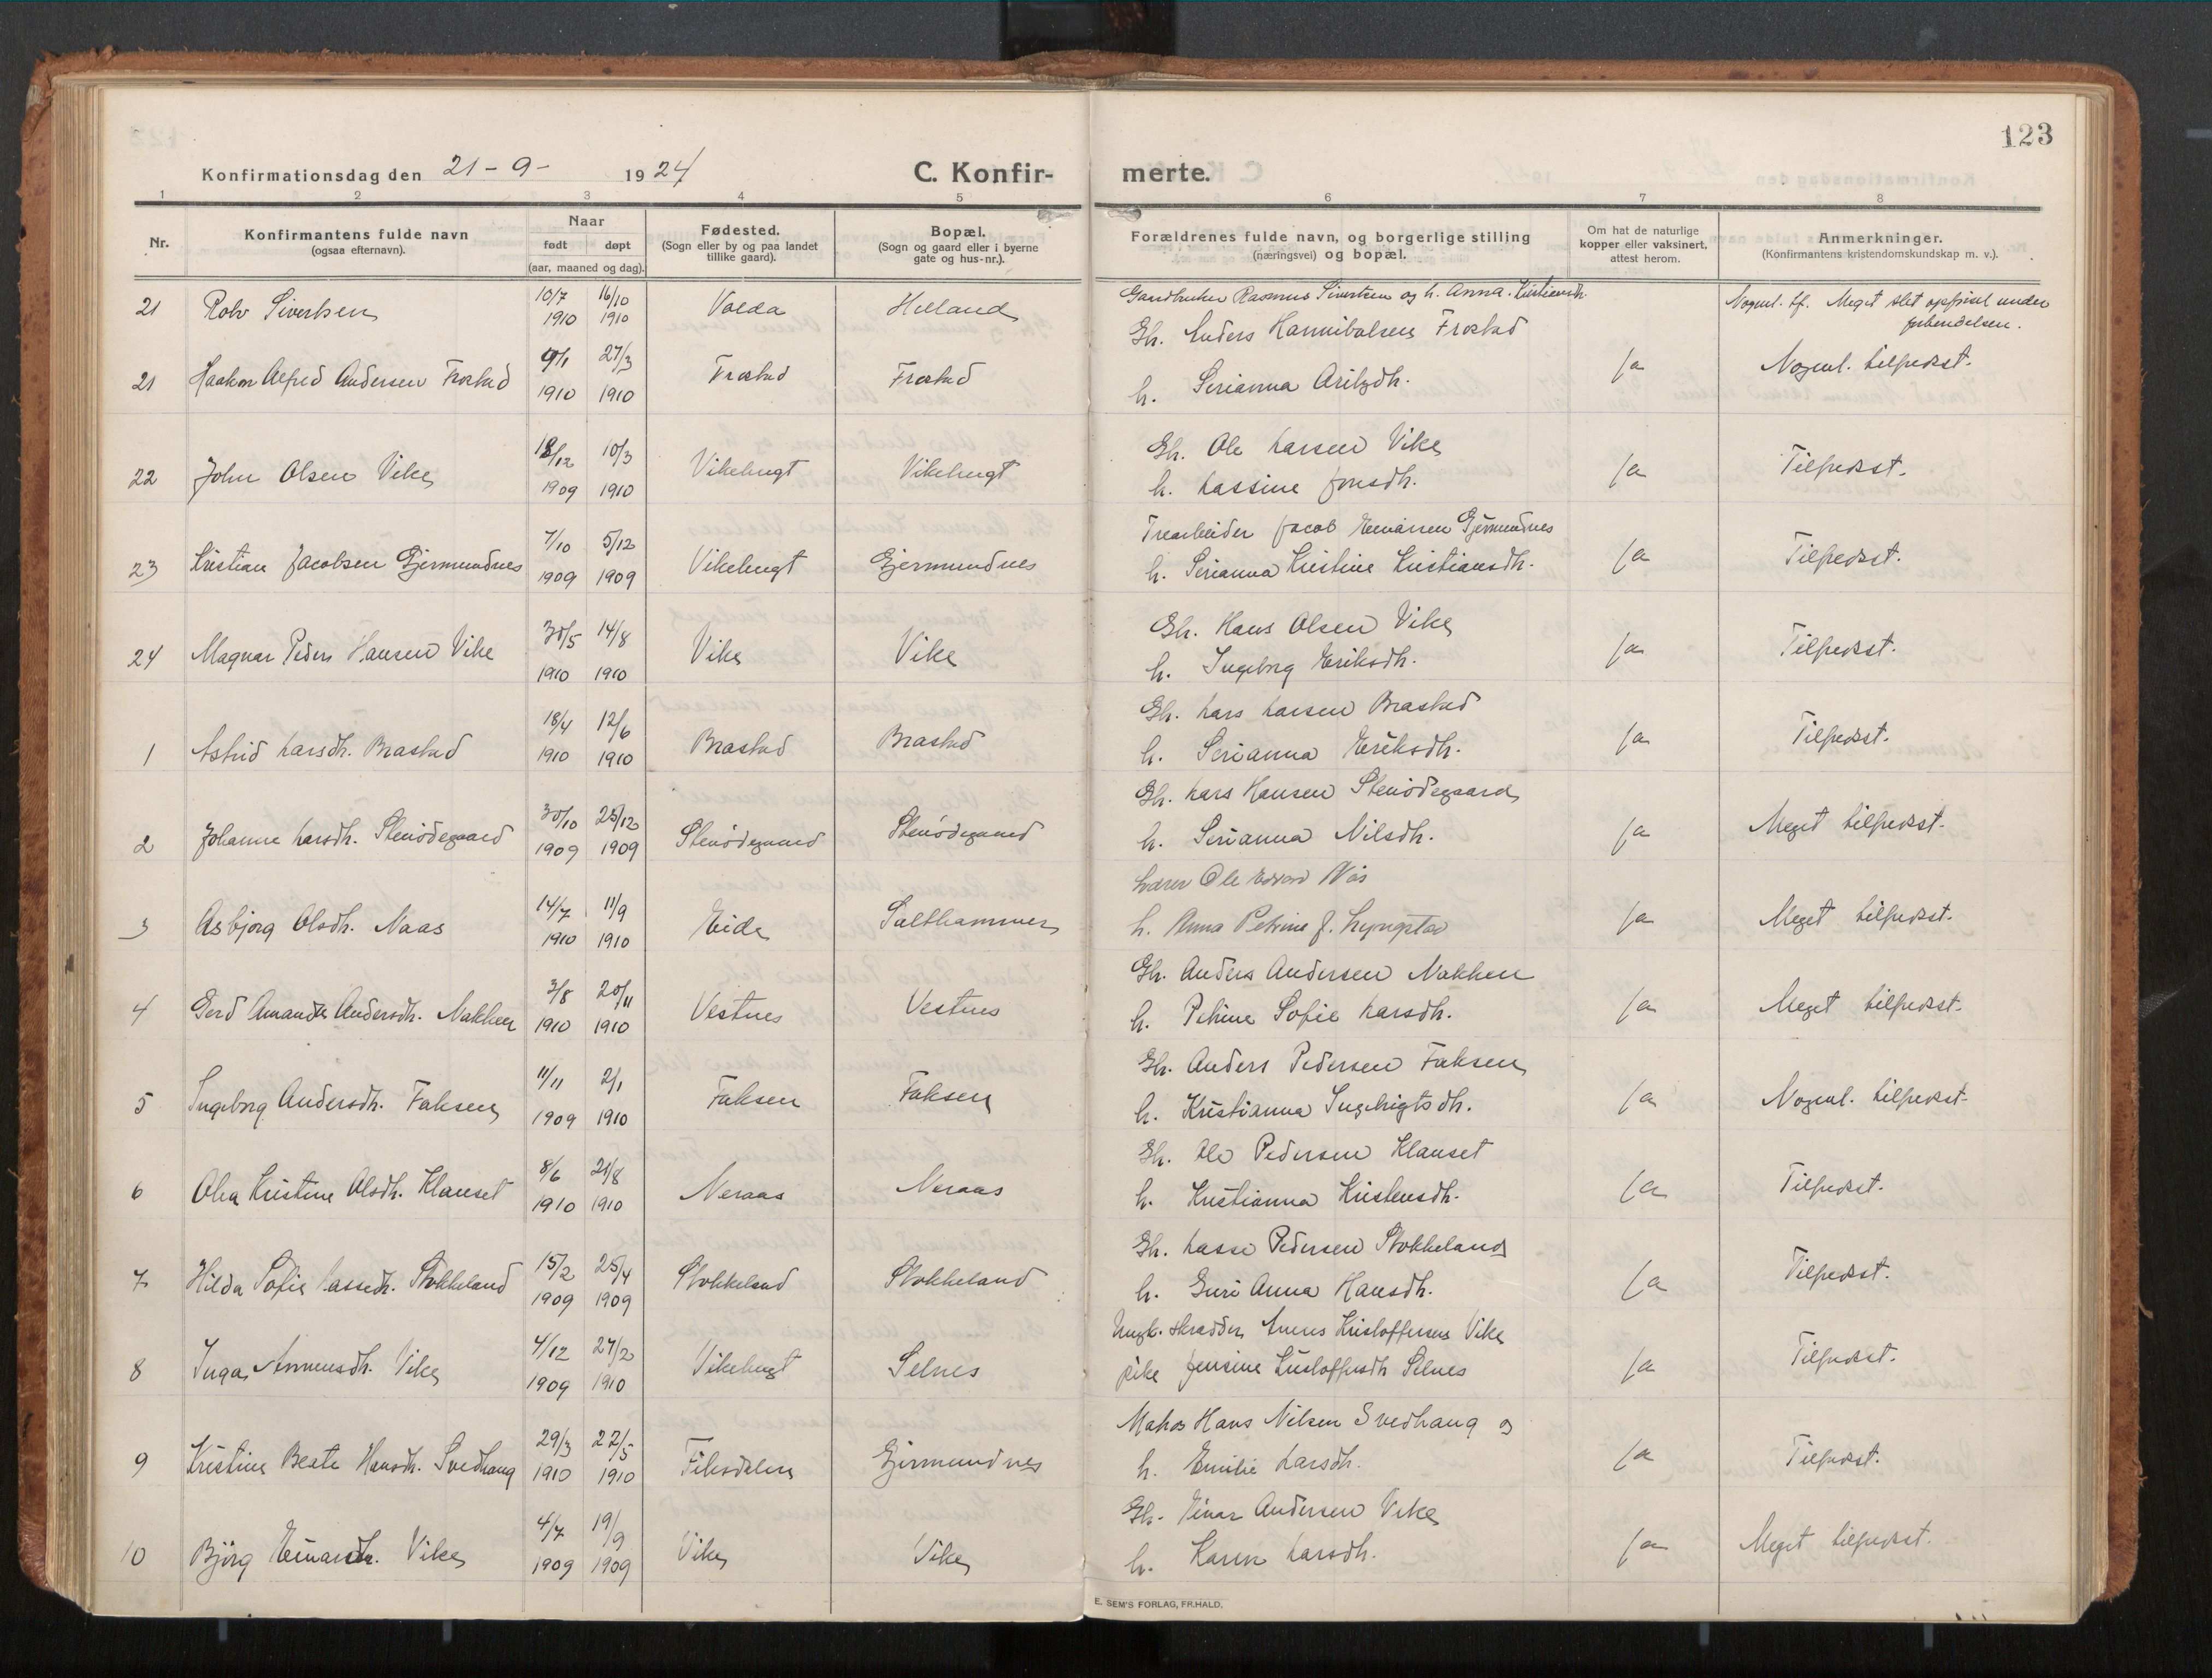 123
Konfirmationsdag den 21-9- 1924 C. Konfirmerte.
1 2 3 4 5 6 7 8
Nr. Konfirmantens fulde navn (ogsaa efternavn). Naar født døpt (aar, maaned og dag). Fødested. (Sogn eller by og paa landet tillike gaard). Bopæl. (Sogn og gaard eller i byerne gate og hus-nr.). Forældrenes fulde navn, og borgerlige stilling (næringsvei) og bopæl. Om hat de naturlige kopper eller vaksinert, attest herom. Anmerkninger. (Konfirmantens kristendomskundskap m. v.).
21 Rolv Sivertsen 10/7 1910 16/10 1910 Volda Helland Gaardbruker Rasmus Sivertsen og h. Anna Kristiansdh. Nogenl. tf. Meget slet opførsel under forberedelsen.
21 Haakon Alfred Andersen Frostad 9/1 1910 27/3 1910 Frostad Frostad Gbr. Anders Hannibalsen Frostad
h. Serianna ja Nogenl. tilfredsst.
22 John Olsen Vike 18/12 1909 10/3 1910 Vikebugt Vikebugt Gbr. Ole Larsen Vike
h. Lassine Jonsdh. ja Tilfredsst.
23 Kristian Jacobsen Gjermundnes 7/10 1909 5/12 1909 Vikebugt Gjermundnes Træarbeider Jacob Gjermundnes
h. Serianna Kristine Kristiansdh. ja Tilfredsst.
24 Magnar Peder Hansen Vike 30/5 1910 14/8 1910 Vike Vike Gbr. Hans Olsen Vike
h. Ingeborg Eriksdh. ja Tilfredsst.
1 Astrid Larsdh. Brastad 18/4 1910 12/6 1910 Brastad Brastad Gbr. Lars Larsen Brastad
h. Serianna Eriksdh. ja Tilfredsst.
2 Johanne Larsdh. Stenødegaard 30/10 1909 25/12 1909 Stenødegaard Stenødegaard Gbr. Lars Hansen Stenødegaard
h. Serianna Nilsdh. ja Meget tilfredsst.
3 Asbjørg Olsdh. Naas 14/7 1910 11/9 1910 Eide Salthammer Lærer Ole Edvard Nås
h. Anna Petrine f. Lyngstad ja Meget tilfredsst.
4 Gerd Amanda Andersdh. Nakken 3/8 1910 20/11 1910 Vestnes Vestnes Gbr. Anders Andersen Nakken
h. Petrine Sofie Larsdh. ja Meget tilfredsst.
5 Ingeborg Andersdh. Faksen 11/11 1909 2/1 1910 Faksen Faksen Gbr. Anders Pedersen Faksen
h. Kristianna Ingebrigtsdh. ja Nogenl. tilfredsst.
6 Olea Kristine Olsdh. Klauset 8/6 1910 21/8 1910 Neraas Neraas Gbr. Ole Pedersen Klauset
h. Kristianna Kristensdh. ja Tilfredsst.
7 Hilda Sofie Lassedh. Stokkeland 15/2 1909 25/4 1909 Stokkeland Stokkeland Gbr. Lasse Pedersen Stokkeland
h. Guri Anna Hansdh. ja Tilfredsst.
8 Inga Vike 4/12 1909 27/2 1910 Vikebugt Selnes Ungk. skrædder Kristoffersen Vike
pike Jensine Kristoffersdh Selnes ja Tilfredsst.
9 Kristine Beate Hansdh. Svedhaug 29/3 1910 22/5 1910 Fiksdalen Gjermundnes Matros Hans Nilsen Svedhaug og
h. Emilie Larsdh. ja Tilfredsst.
10 Bjørg Einarsdh. Vike 4/7 1909 19/9 1909 Vike Vike Gbr. Einar Andersen Vike
h. Karen Larsdh. ja Meget tilfredsst.
E. SEM'S FORLAG, FR.HALD.